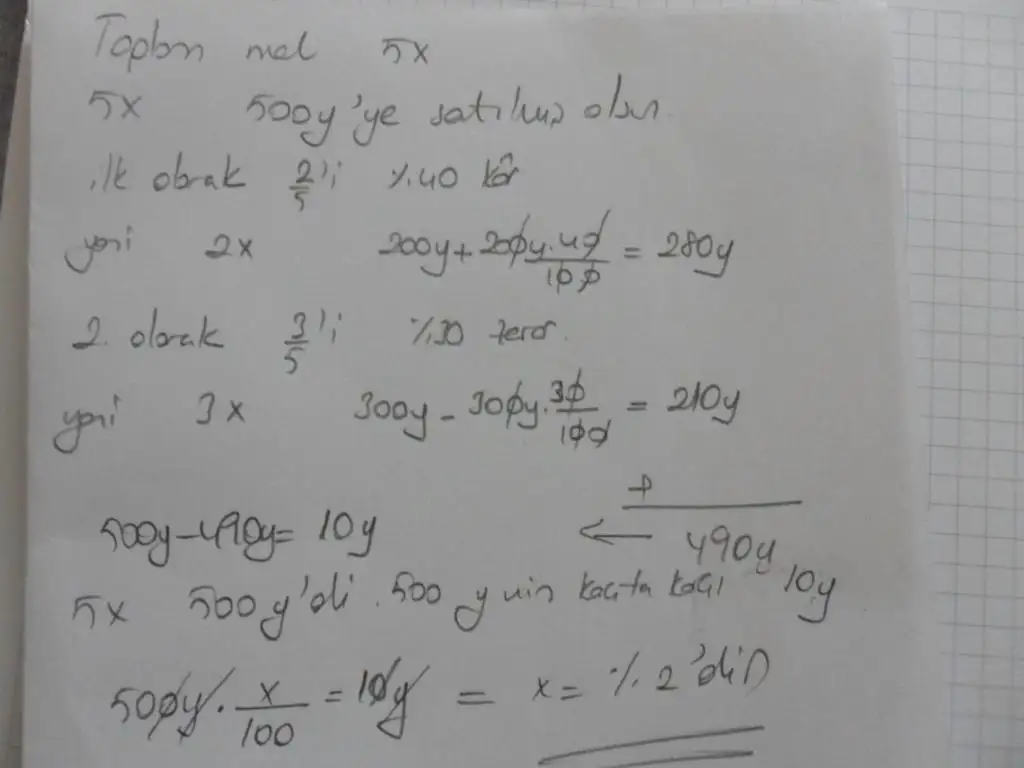 Toplam mal 5x
5x 500y'ye satılmış olsun.
ilk olarak 2/5'i %40 kâr
yani 2x 200y + 200y.40/100 = 280y
2. olarak 3/5'i %30 zarar.
yani 3x 300y - 300y.30/100 = 210y
+
500y - 490y = 10y ← 490y
5x 500y'di. 500 y nin kaçta kaçı 10y
500y . x/100 = 10y = x = %2'dir